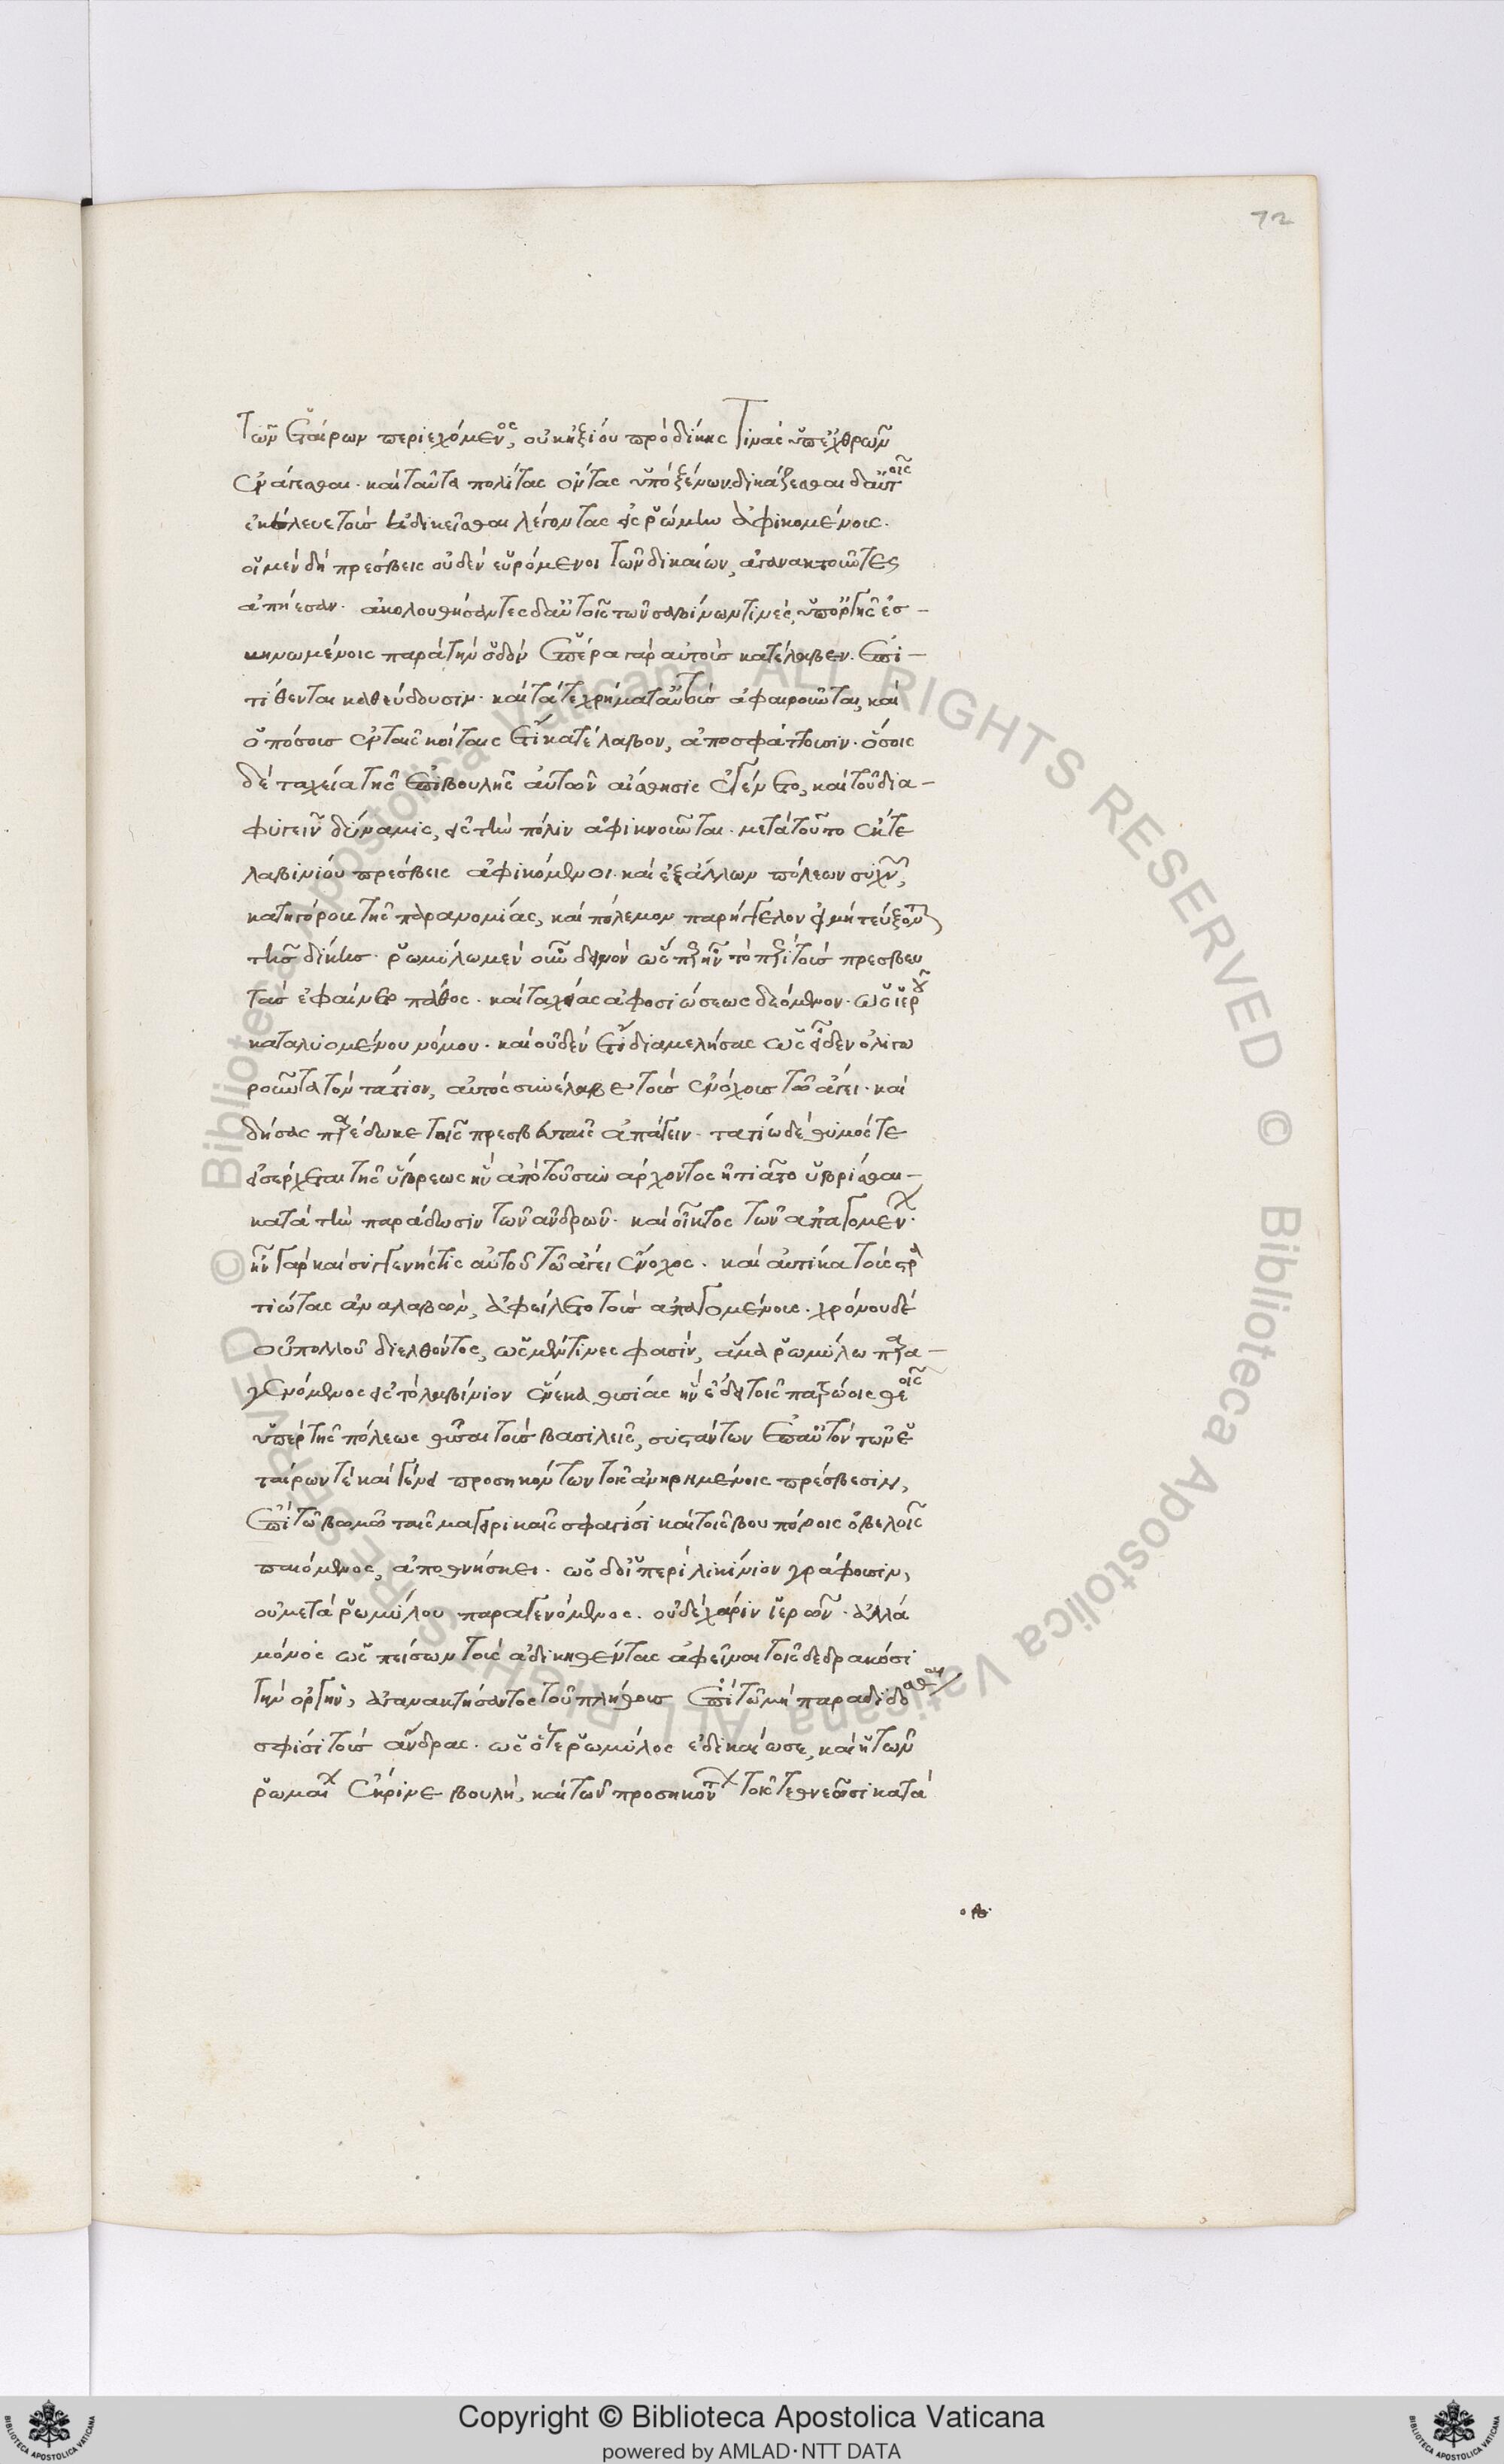 72
τῶν ἑταίρων περιεχόμενος, οὐκ ἠξίου πρὸ δίκης τινὰς ὑπ' ἐχθρῶν
ἐνάγεσθαι. καὶ ταῦτα πολίτας ὄντας ὑπὸ ξένων. δικάζεσθαι δ' αὐτοῖς
ἐκέλευε τοὺς ἀδικεῖσθαι λέγοντας εἰς ῥώμην ἀφικομένοις.
οἱ μὲν δὴ πρέσβεις οὐδὲν εὑρόμενοι τῶν δικαίων, ἀγανακτοῦντες
ἀπῄεσαν. ἀκολουθήσαντες δ' αὐτοῖς τῶν σαβίνων τινὲς, ὑπ' ὀργῆς ἐσ-
κηνωμένοις παρὰ τὴν ὁδόν ἑσπέρα γὰρ αὐτοὺς κατέλαβεν. ἐπι-
τίθενται καθεύδουσιν. καὶ τά τε χρήματ' αὐτοὺς ἀφαιροῦνται, καὶ
ὁπόσους ἐν ταῖς κοίταις ἔτι κατέλαβον, ἀποσφάττουσιν. ὅσοις
δὲ ταχεῖα τῆς ἐπιβουλῆς αὐτῶν αἴσθησις ἐγένετο, καὶ τοῦ δια-
φυγεῖν δύναμις, εἰς τὴν πόλιν ἀφικνοῦνται. μετὰ τοῦτο ἔκ τε
λαβινίου πρέσβεις ἀφικόμενοι. καὶ ἐξ ἄλλων πόλεων συχνῶν,
κατηγόρουν τῆς παρανομίας, καὶ πόλεμον παρήγγελον εἰ μὴ τεύξονται
τῆς δίκης. ῥωμύλω μὲν οὖν δεινὸν ὡς περ ἦν τὸ περὶ τοὺς πρεσβευ
τὰς ἐφαίνετο πάθος. καὶ ταχείας ἀφοσιώσεως δεόμενον. ὡς ἱεροῦ
καταλυομένου νόμου. καὶ οὐδὲν ἔτι διαμελήσας ὡς εἶδεν ὀλιγω
ροῦντα τὸν τάτιον, αὐτὸς συνέλαβε τοὺς ἐνόχους τῷ ἄγει. καὶ
δήσας παρέδωκε τοῖς πρεσβευταῖς ἀπάγειν. τατίω δὲ θυμός τε
εἰσέρχεται τῆς ὕβρεως ἣν ἀπὸ τοῦ συνάρχοντος ᾐτιᾶτο ὑβρίσθαι-
κατὰ τὴν παράδωσιν τῶν ἀνδρῶν. καὶ οἶκτος τῶν ἀπαγομένων.
ἦν γὰρ καὶ συγγενής τις αὐτοῦ τῷ ἄγει ἔνοχος. καὶ αὐτίκα τοὺς στρα
τιώτας ἀναλαβὼν, ἀφείλετο τοὺς ἀπαγομένους. χρόνου δὲ
οὐ πολλοῦ διελθόντος, ὡς μέν τινες φασίν, ἅμα ῥωμύλω παρα-
γενόμενος εἰς τὸ λαβίνιον ἕνεκα θυσίας ἣν ἔδει τοῖς πατρώοις θεοῖς
ὑπὲρ τῆς πόλεως θῦσαι τοὺς βασιλεῖς, συστάντων ἐπ' αὐτὸν τῶν ἑ
ταίρων τέ καὶ γένει προσηκόντων τοῖς ἀνῃρημένοις πρέσβεσιν,
ἐπὶ τῶ βωμῶ ταῖς μαγειρικαῖς σφαγίσι καὶ τοῖς βουπόροις ὀβελοῖς
παιόμενος, ἀποθνήσκει. ὡς δ' οἱ περὶ λικίνιον γράφουσιν,
οὐ μετὰ ῥωμύλου παραγενόμενος. οὐδὲ χάριν ἱερῶν. ἀλλὰ
μόνος ὡς πείσων τοὺς ἀδικηθέντας ἀφεῖναι τοῖς δεδρακόσι
τὴν ὀργὴν, ἀγανακτήσαντος τοῦ πλήθους ἐπὶ τῶ μὴ παραδίδοσθαι
σφίσι τοὺς ἄνδρας. ὡς ὅτε ῥωμύλος ἐδικαίωσε, καὶ ἡ τῶν
ῥωμαίων ἔκρινε βουλή, καὶ τῶν προσηκόντων τοῖς τεθνεῶσι κατὰ
οβ
© Biblioteca Apostolica Vaticana ALL RIGHTS RESERVED
© Biblioteca Apostolica Vaticana ALL RIGHTS RESERVED
Copyright © Biblioteca Apostolica Vaticana
powered by AMLAD·NTT DATA
BIBLIOTECA APOSTOLICA VATICANA
BIBLIOTECA APOSTOLICA VATICANA